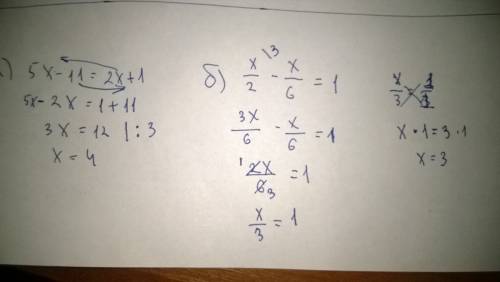 ) 5x - 11 = 2x + 1
5x - 2x = 1 + 11
3x = 12 | : 3
x = 4
б) x/2 \3 - x/6 = 1
3x/6 - x/6 = 1
1 2x/6 3 = 1
x/3 = 1
x/3 = 1/1
x · 1 = 3 · 1
x = 3